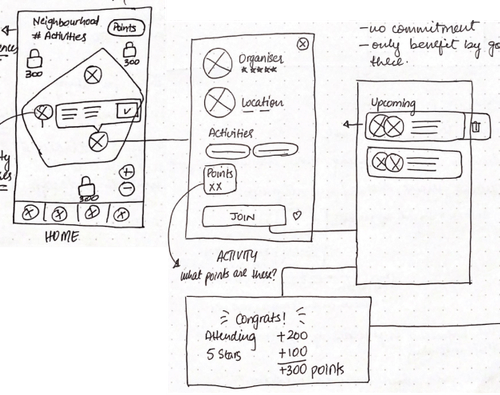 Neighbourhood
# Activities
Points
300
300
300
HOME
Organiser
*****
Location
Activities
Points
xx
JOIN
ACTIVITY
what points are these?
- no commitment
- only benefit by
there.
Upcoming
Congrats!
Attending +200
5 Stars +100
+300 points